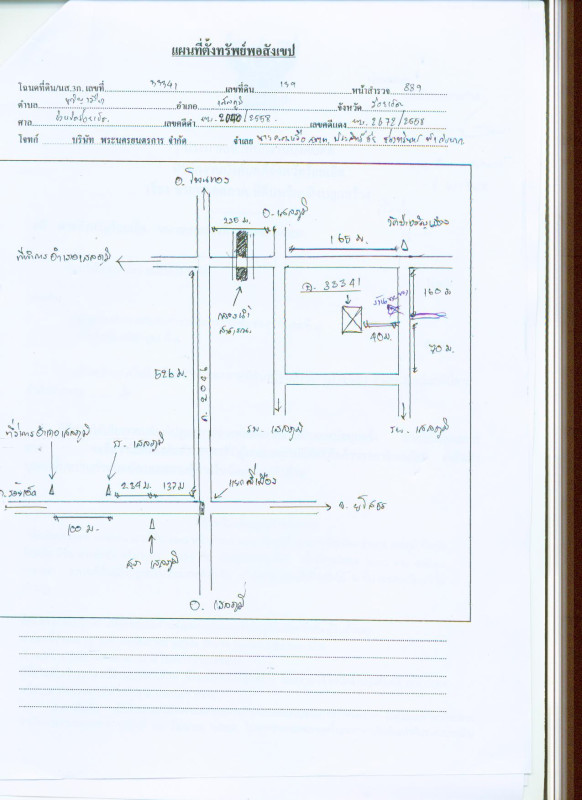 แผนที่ตั้งทรัพย์พอสังเขป
โฉนดที่ดิน/นส.3ก. เลขที่ 33341 เลขที่ดิน 139 หน้าสำรวจ 889
ตำบล ขวัญเมือง อำเภอ เสลภูมิ จังหวัด ร้อยเอ็ด
ศาล จังหวัดร้อยเอ็ด เลขคดีดำ /2558 เลขคดีแดง ผบ.2672/2558
โจทก์ บริษัท พระนครยนตรการ จำกัด จำเลย
อ. โพนทอง
235 ม.
อ. เสลภูมิ
165 ม.
ที่ทำการอำเภอเสลภูมิ
ฉ. 33341
160 ม
คลองน้ำ
สาธารณะ
40 ม.
70 ม.
526 ม.
ถ. 2046
รพ. เสลภูมิ
รพ. เสลภูมิ
ที่ว่าการอำเภอเสลภูมิ
สภ. เสลภูมิ
234 ม. 137 ม
แยกขี้เมือง
จ. ร้อยเอ็ด
จ. ยโสธร
100 ม.
เสลภูมิ
อ. เสลภูมิ